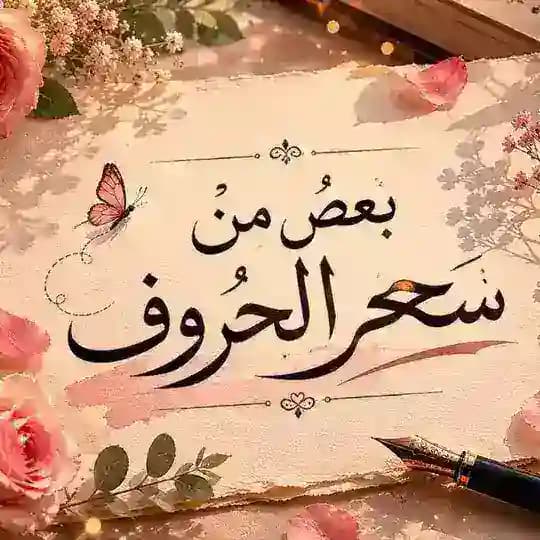 بعضُ منْ
سَحر الحُروف